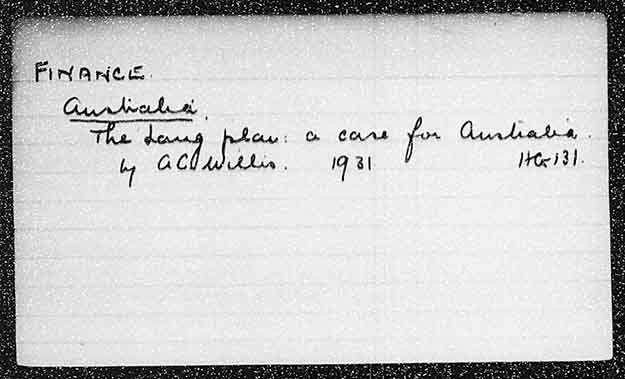 FINANCE.
Australia.
The Lang plan: a case for Australia.
by A.C. Willis. 1931 HG 131.